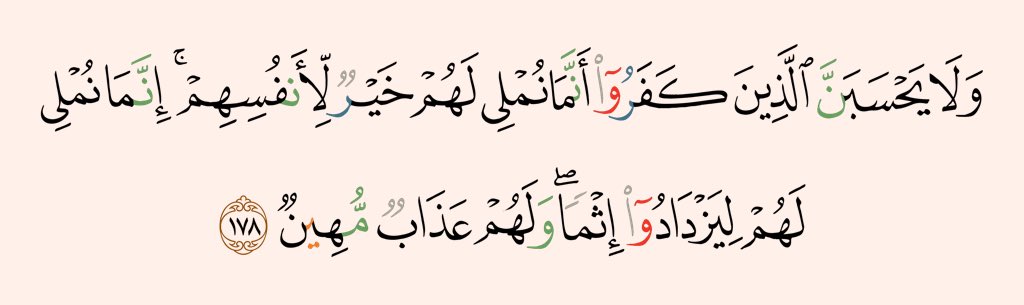 وَلَا يَحْسَبَنَّ ٱلَّذِينَ كَفَرُوٓا۟ أَنَّمَا نُمْلِى لَهُمْ خَيْرٌۭ لِّأَنفُسِهِمْ ۚ إِنَّمَا نُمْلِى
لَهُمْ لِيَزْدَادُوٓا۟ إِثْمًۭا ۖ وَلَهُمْ عَذَابٌۭ مُّهِينٌۭ ١٧٨